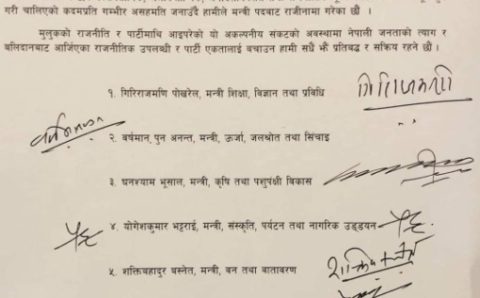 गरी चालिएको कदमप्रति गम्भीर असहमति जनाउँदै हामीले मन्त्री पदबाट राजीनामा गरेका छौं ।
मुलुकको राजनीति र पार्टीमाथि आइपरेको यो अकल्पनीय संकटको अवस्थामा नेपाली जनताको त्याग र
बलिदानबाट आर्जिएका राजनीतिक उपलब्धी र पार्टी एकतालाई बचाउन हामी सधैं झैं प्रतिबद्ध र सक्रिय रहने छौं ।
१. गिरिराजमणि पोखरेल, मन्त्री शिक्षा, विज्ञान तथा प्रविधि
२. वर्षमान पुन अनन्त, मन्त्री, ऊर्जा, जलश्रोत तथा सिंचाइ
३. घनश्याम भूसाल, मन्त्री, कृषि तथा पशुपंक्षी विकास
४. योगेशकुमार भट्टराई, मन्त्री, संस्कृति, पर्यटन तथा नागरिक उड्डयन
५. शक्तिबहादुर बस्नेत, मन्त्री, वन तथा वातावरण